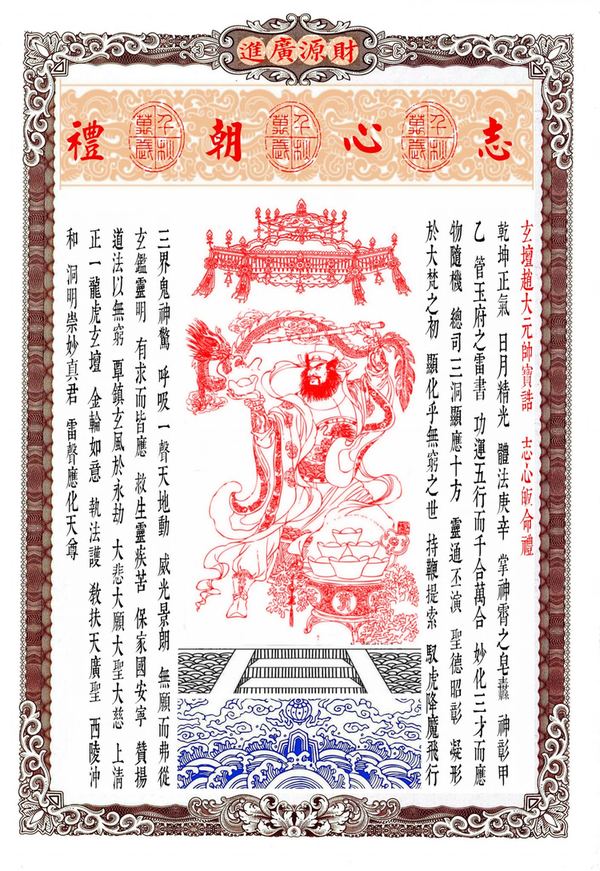 財源廣進
志心朝禮
千秋萬歲
千秋萬歲
千秋萬歲
玄壇趙大元帥寶誥 志心皈命禮
乾坤正氣 日月精光 體法庚辛 掌神霄之皂纛 神彰甲
乙 管玉府之雷書 功運五行而千合萬合 妙化三才而應
物隨機 總司三洞顯應十方 靈通丕演 聖德昭彰 凝形
於大梵之初 顯化乎無窮之世 持鞭提索 馭虎降魔飛行
三界鬼神驚 呼吸一聲天地動 威光景朗 無願而弗從
玄鑑靈明 有求而皆應 救生靈疾苦 保家國安寧 贊揚
道法以無窮 覃鎮玄風於永劫 大悲大願大聖大慈 上清
正一龍虎玄壇 金輪如意 執法護 教扶天廣聖 西陵沖
和 洞明崇妙真君 雷聲應化天尊